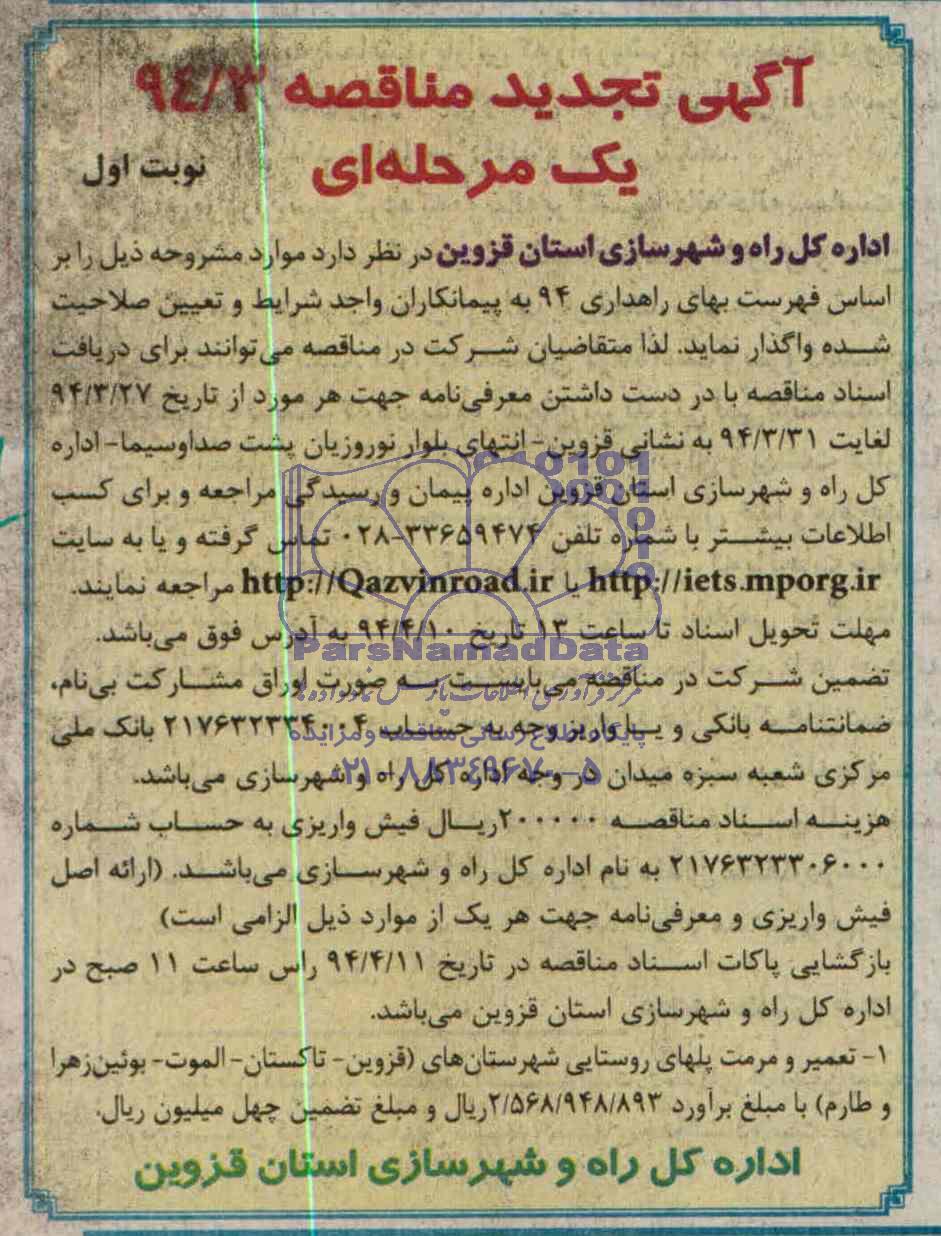 آگهی تجدید مناقصه ۹۴/۳
یک مرحله‌ای
نوبت اول
اداره کل راه و شهرسازی استان قزوین در نظر دارد موارد مشروحه ذیل را بر
اساس فهرست بهای راهداری ۹۴ به پیمانکاران واجد شرایط و تعیین صلاحیت
شده واگذار نماید. لذا متقاضیان شرکت در مناقصه می‌توانند برای دریافت
اسناد مناقصه با در دست داشتن معرفی‌نامه جهت هر مورد از تاریخ ۹۴/۳/۲۷
لغایت ۹۴/۳/۳۱ به نشانی قزوین- انتهای بلوار نوروزیان پشت صداوسیما- اداره
کل راه و شهرسازی استان قزوین اداره پیمان و رسیدگی مراجعه و برای کسب
اطلاعات بیشتر با شماره تلفن ۳۳۶۵۹۴۷۴-۰۲۸ تماس گرفته و یا به سایت
http://iets.mporg.ir یا http://Qazvinroad.ir مراجعه نمایند.
مهلت تحویل اسناد تا ساعت ۱۳ تاریخ ۹۴/۴/۱۰ به آدرس فوق می‌باشد.
ParsNamadData
تضمین شرکت در مناقصه می‌بایست به صورت اوراق مشارکت بی‌نام،
ضمانتنامه بانکی و یا واریز وجه به حساب ۲۱۷۶۳۲۳۳۴۰۰۴ بانک ملی
پایگاه اطلاع رسانی مناقصه و مزایده
مرکزی شعبه سبزه میدان در وجه اداره کل راه و شهرسازی می‌باشد.
۰۲۱-۸۸۳۴۹۶۷۰-۵
هزینه اسناد مناقصه ۲۰۰۰۰۰ریال فیش واریزی به حساب شماره
۲۱۷۶۳۲۳۳۰۶۰۰۰ به نام اداره کل راه و شهرسازی می‌باشد. (ارائه اصل
فیش واریزی و معرفی‌نامه جهت هر یک از موارد ذیل الزامی است)
بازگشایی پاکات اسناد مناقصه در تاریخ ۹۴/۴/۱۱ راس ساعت ۱۱ صبح در
اداره کل راه و شهرسازی استان قزوین می‌باشد.
۱- تعمیر و مرمت پلهای روستایی شهرستان‌های (قزوین- تاکستان- الموت- بوئین‌زهرا
و طارم) با مبلغ برآورد ۲/۵۶۸/۹۴۸/۸۹۳ریال و مبلغ تضمین چهل میلیون ریال.
اداره کل راه و شهرسازی استان قزوین